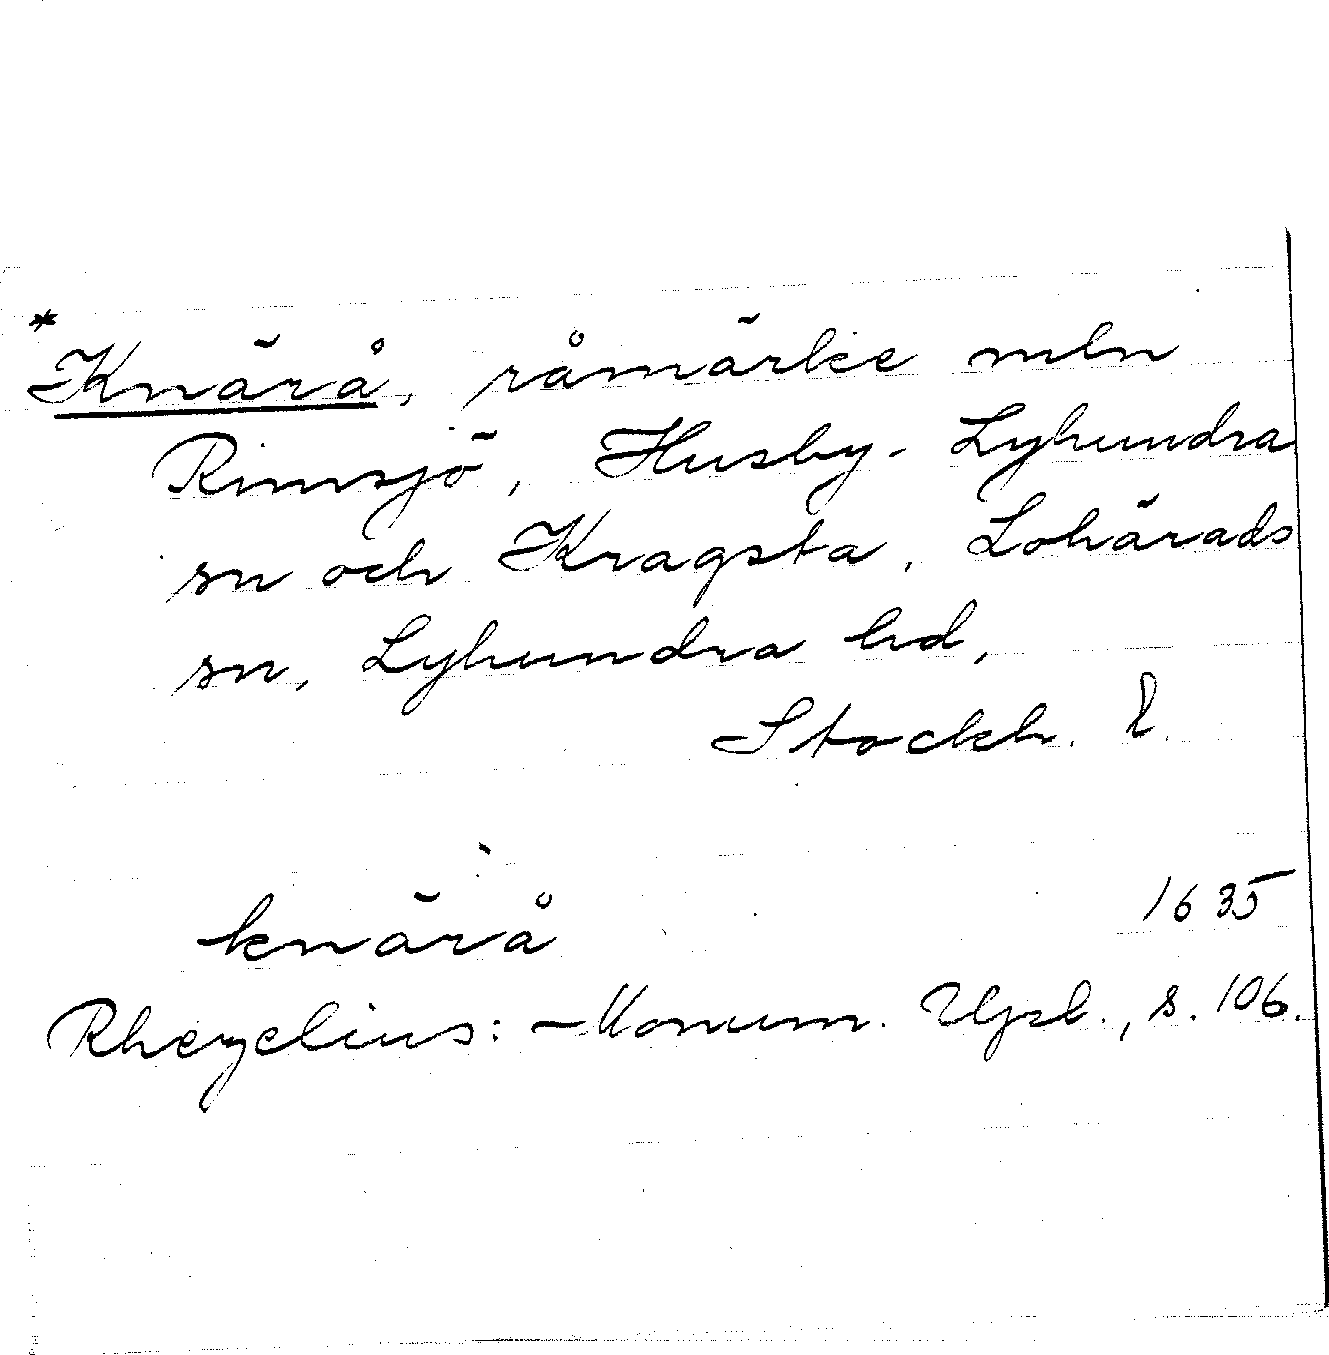 *
Knärå, råmärke mln
Rimsjö, Husby-Lyhundra
sn och Kragsta, Lohärads
sn, Lyhundra hd,
Stockh. l.
knärå 1635
Rhezelius: Monum. Upl., s. 106.